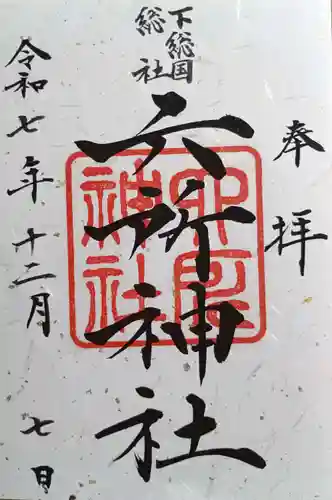 奉拝
下総国
総社
六所神社
令和七年十二月七日
六所神社